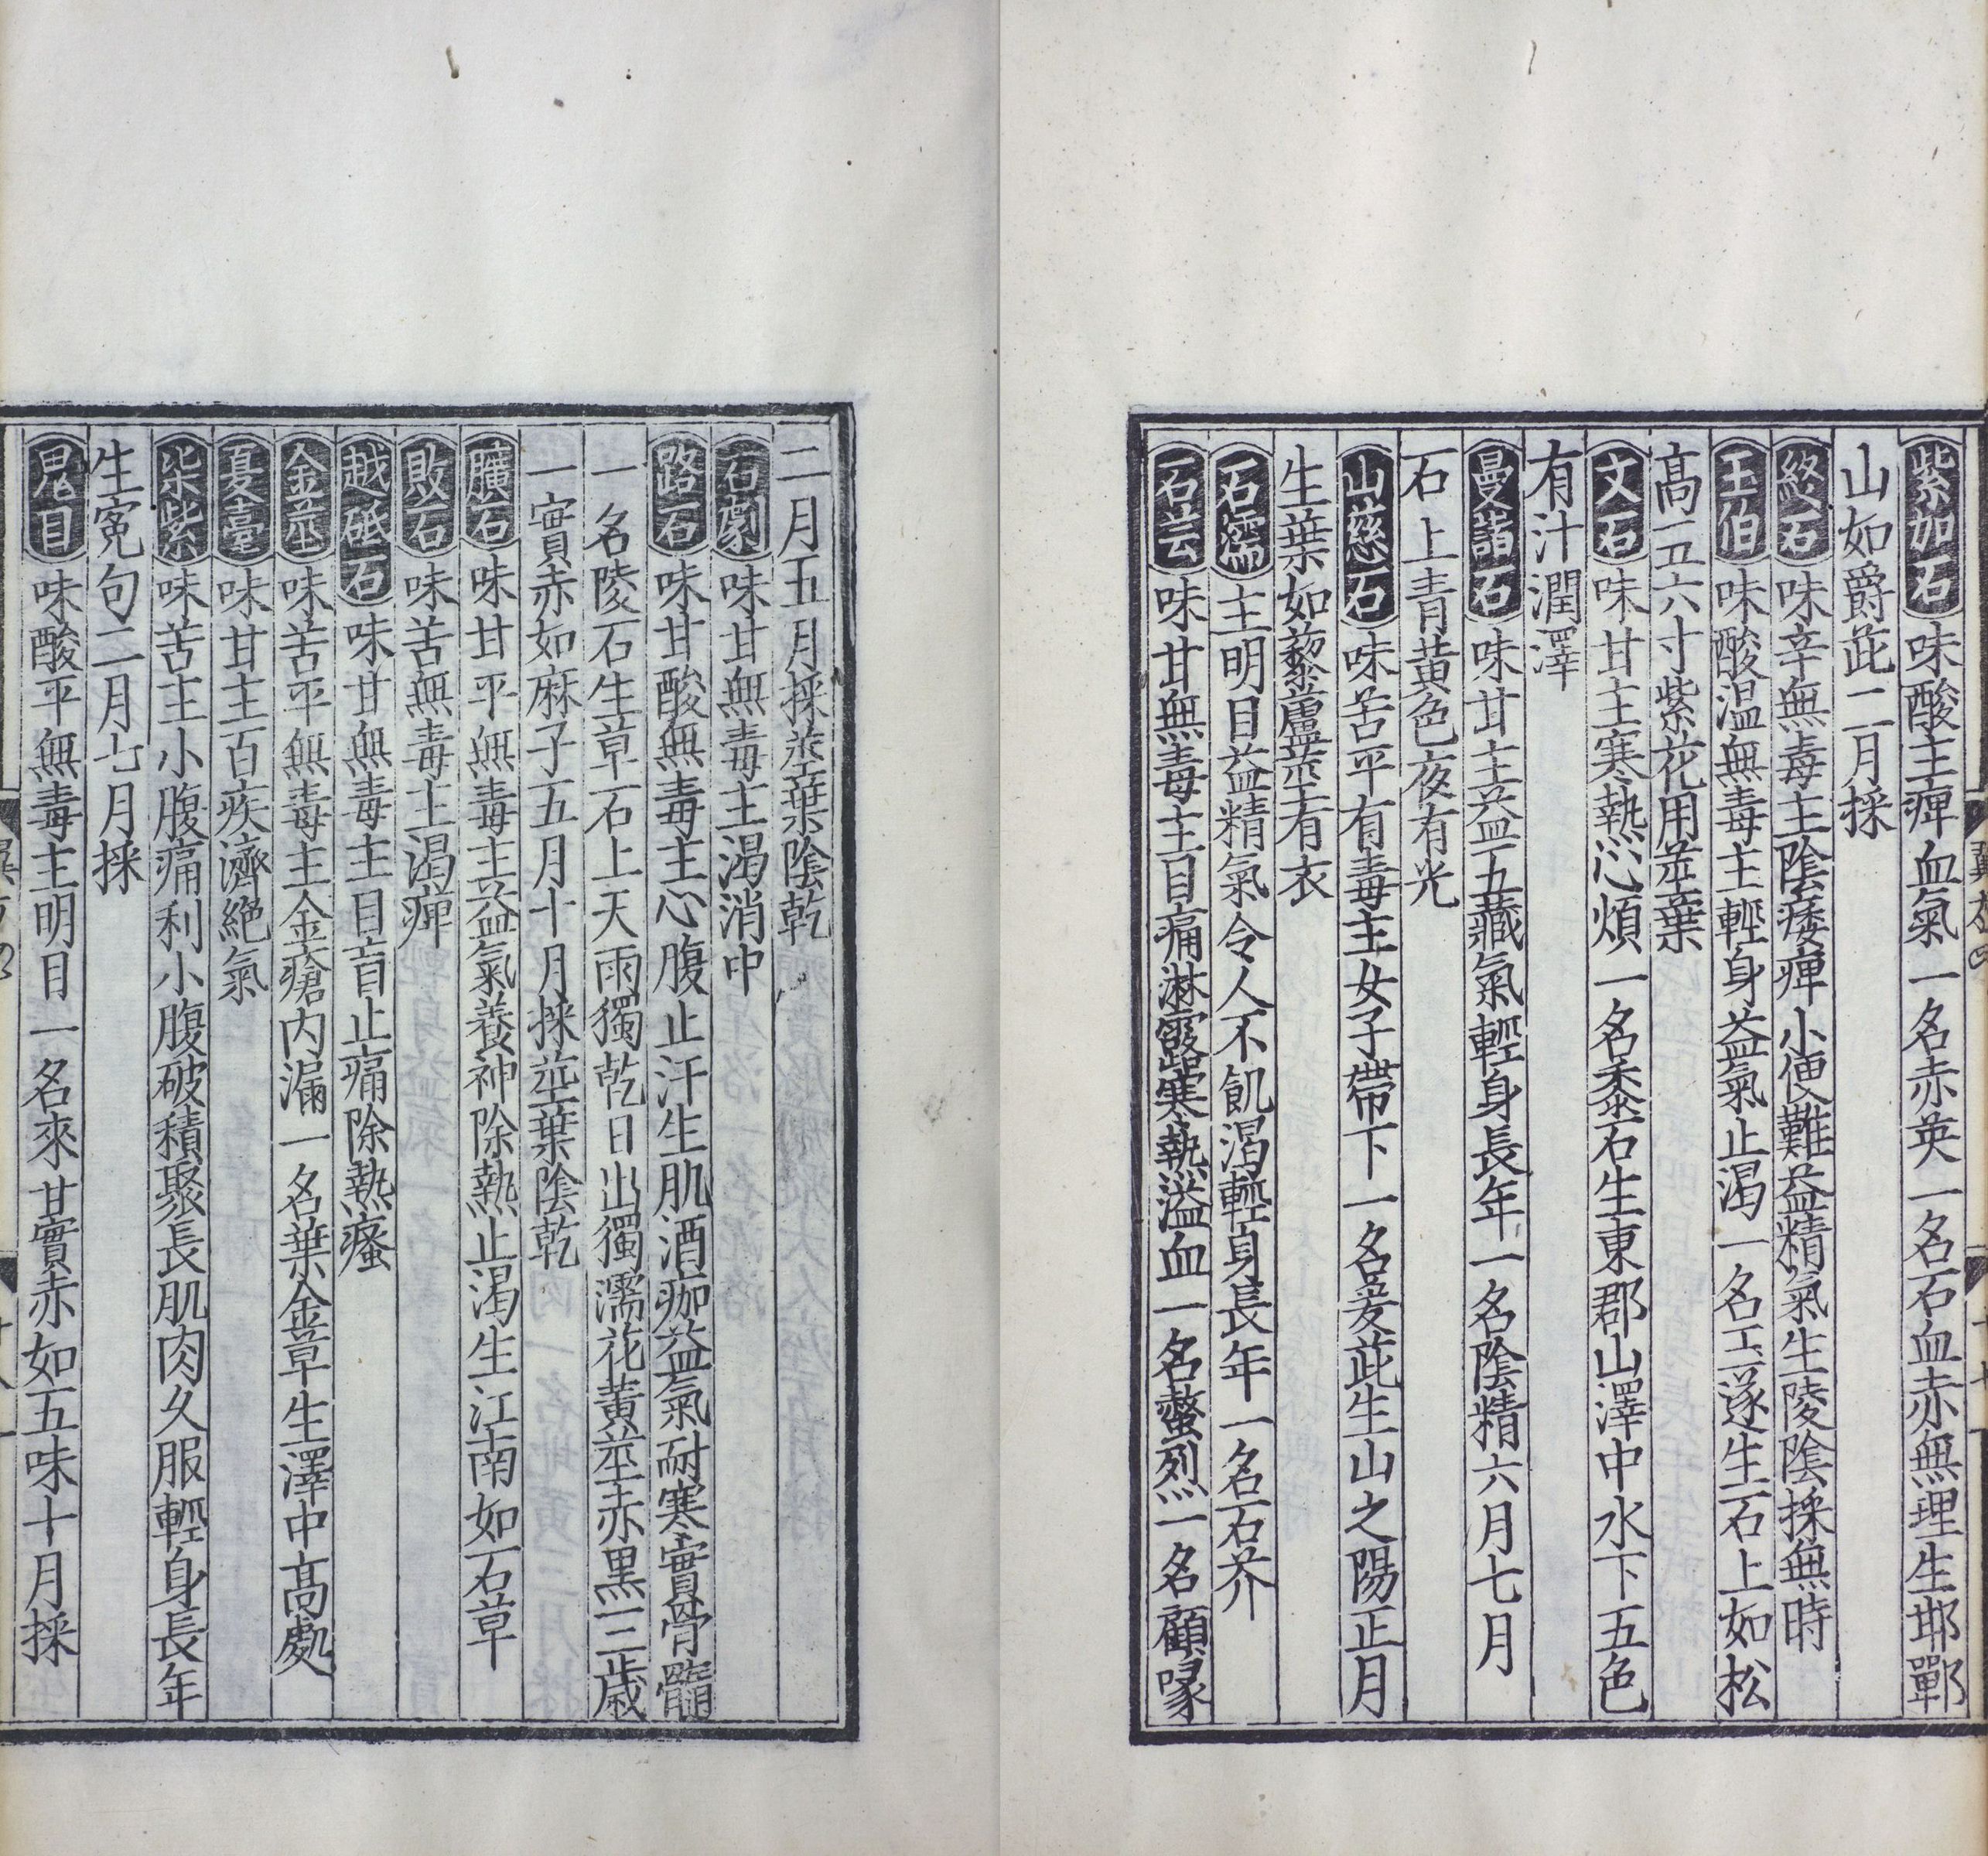 紫加石味酸主痺血氣一名赤英一名石血赤無理生邯鄲
山如爵茈二月採
終石味辛無毒主陰痿痺小便難益精氣生陵陰採無時
王伯味酸温無毒主輕身益氣止渴一名王遂生石上如松
髙五六寸紫花用莖葉
文石味甘主寒熱心煩一名黍石生東郡山澤中水下五色
有汁潤澤
曼諸石味甘主益五藏氣輕身長年一名陰精六月七月
石上青黃色夜有光
山慈石味苦平有毒主女子帶下一名爰茈生山之陽正月
生葉如藜蘆莖有衣
石濡主明目益精氣令人不飢渴輕身長年一名石芥
石芸味甘無毒主目痛淋露寒熱溢血一名螫烈一名顧喙
二月五月採莖葉陰乾
石劇味甘無毒主渴消中
路石味甘酸無毒主心腹止汗生肌酒痂益氣耐寒實骨髓
一名陵石生草石上天雨獨乾日出獨濡花黃莖赤黑三歲
一實赤如麻子五月十月採莖葉陰乾
曠石味甘平無毒主益氣養神除熱止渴生江南如石草
敗石味苦無毒主渴痺
越砥石味甘無毒主目盲止痛除熱瘙
金莖味苦平無毒主金瘡内漏一名葉金草生澤中髙處
夏臺味甘主百疾濟絕氣
柒紫味苦主小腹痛利小腹破積聚長肌肉久服輕身長年
生寃句二月七月採
鬼目味酸平無毒主明目一名來甘實赤如五味十月採